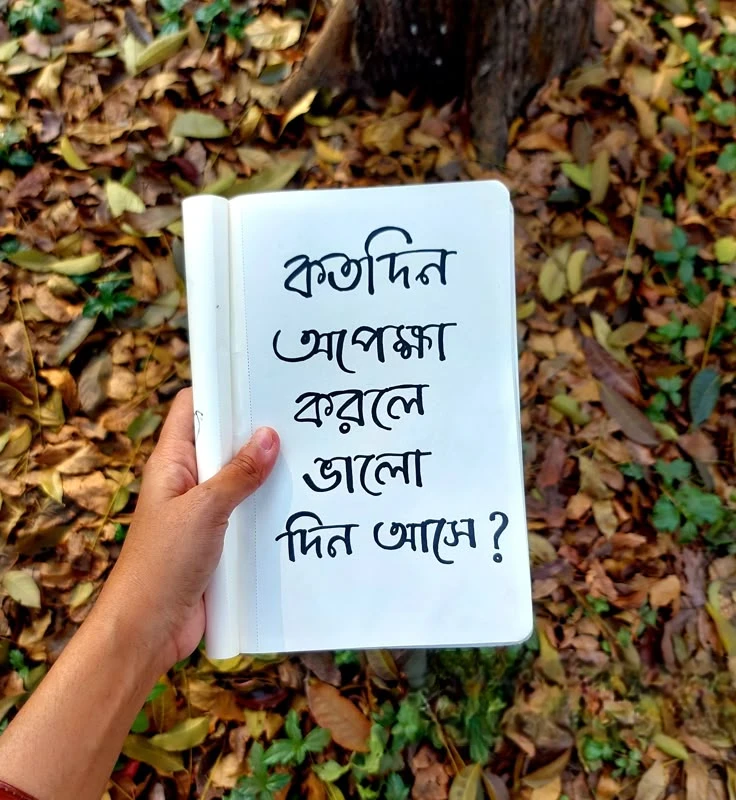 কতদিন
অপেক্ষা
করলে
ভালো
দিন আসে?